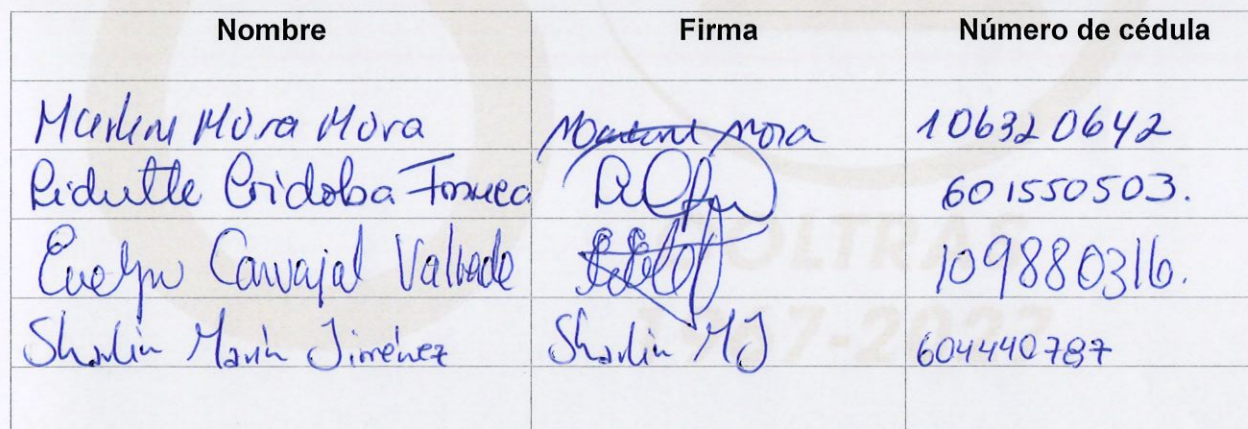 Nombre Firma Número de cédula
Marlene Mora Mora Mora 106320642
Córdoba Fonseca 601550503.
Evelyn Carvajal Valverde 109880316.
Sharlin Marín Jiménez Sharlin MJ 604440787